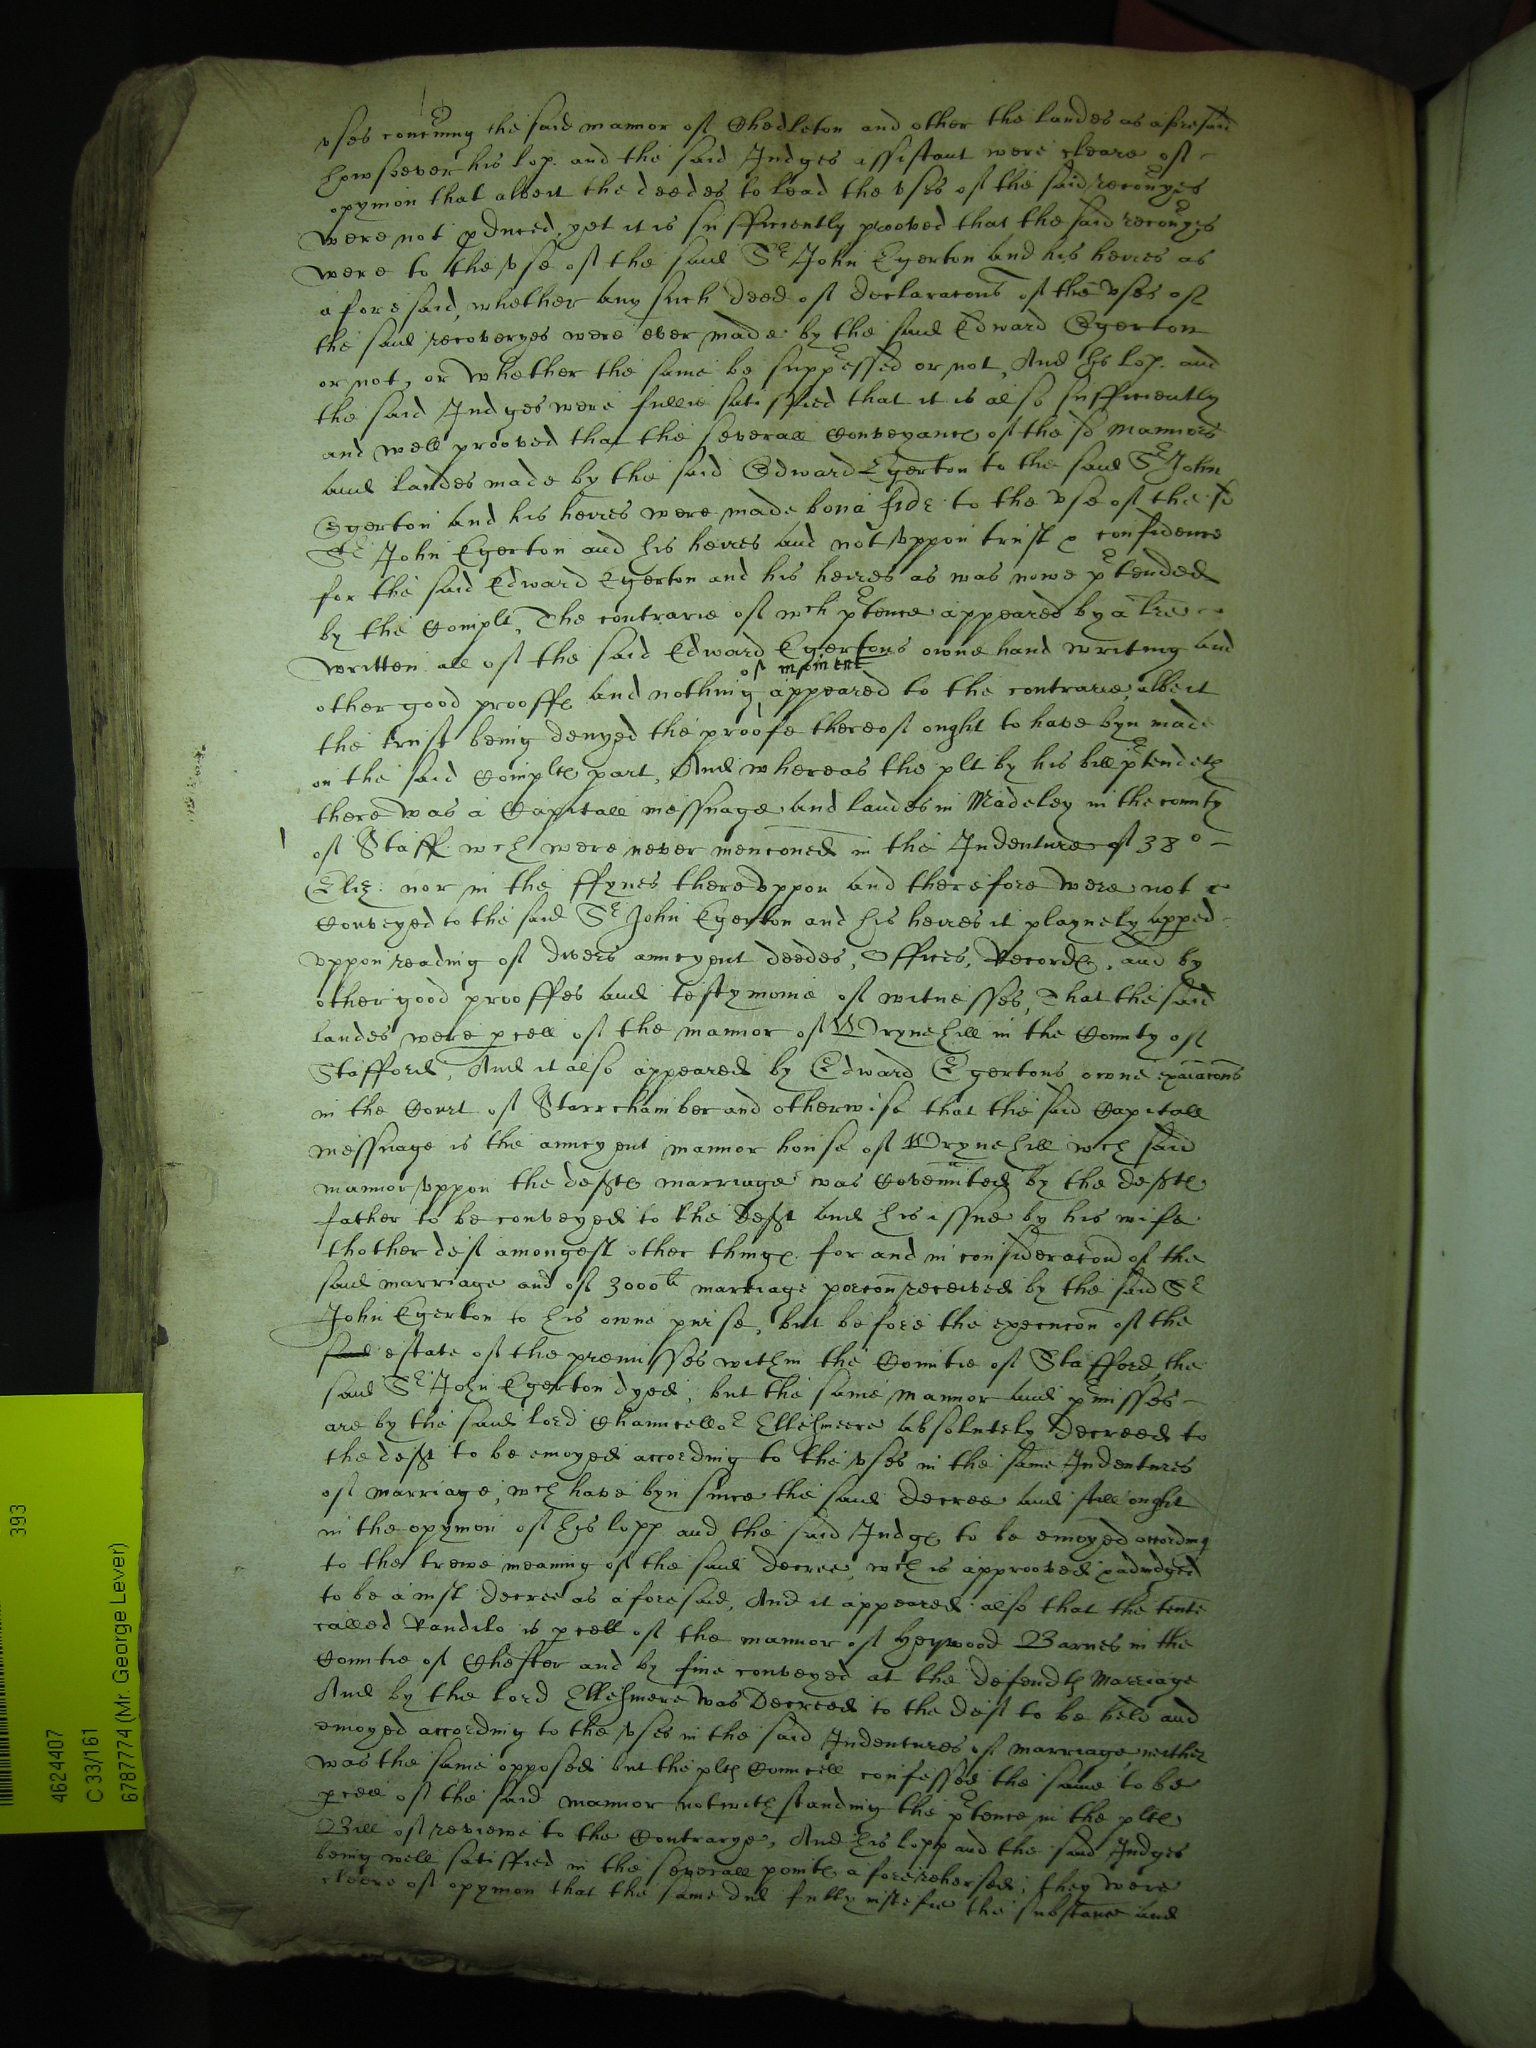 vses concerning the said mannor of Chedleton and other the landes as aforesaid
howsoever his lop. and the said Judges assistant were cleare of
opynion that albeit the deedes to lead the vses of the said recoueryes
were not pduced, yet it is sufficiently prooved that the said recoueryes
were to the vse of the said Sr John Egerton and his heires as
aforesaid, whether any such deed of declaracons of the vses of
the said recoveryes were ever made by the said Edward Egerton
or not, or whether the same be suppressed or not, And his lop. and
the said Judges were fullie satisfied that it is also sufficiently
and well prooved that the severall Conveyances of the sd mannors
and landes made by the said Edward Egerton to the said Sr John
Egerton and his heires were made bona fide to the vse of the sd
Sr John Egerton and his heires and not vppon trust & confidence
for the said Edward Egerton and his heires as was nowe ptended
by the Complt, The contrarie of wch ptence appeared by a lre
written all of the said Edward Egertons owne hand writing and
of moment
other good prooffes and nothing appeared to the contrarie, albeit
the trust being denyed the proofe thereof ought to have byn made
on the said Complts part, And whereas the plt by his bill ptendeth
there was a Capitall messuage and landes in Madeley in the county
of Staff. wch were never menconed in the Indenture of 38o
Eliz: nor in the ffynes therevppon and therefore were not
Conveyed to the said Sr John Egerton and his heires it playnely apped
vppon reading of divers auncyent deedes, Offices, Recordes, and by
other good prooffes and testymonie of witnesses, That the said
landes were pcell of the mannor of Wrynehill in the County of
Stafford, And it also appeared by Edward Egertons owne exaiacons
in the Court of Starrchamber and otherwise that the said Capitall
messuage is the auncyent mannor house of Wrynehill wch said
mannor vppon the defts marriage was Covennted by the defts
father to be conveyed to the deft and his issue by his wife
thother deft amongest other thinges for and in consideracon of the
said marriage and of 3000li marriage porcon received by the said Sr
John Egerton to his owne purse, but before the execucon of the
said estate of the premisses within the Countie of Stafford, the
said Sr John Egerton dyed, but the same mannor and pmisses
are by the said lord Chauncellor Ellesmeere absolutely decreed to
the deft to be enioyed according to the vses in the same Indentures
of marriage, wch have byn since the said decree and still ought
in the opynion of his lopp and the said Judges to be enioyed according
to the trewe meaning of the said decree, wch is approoved & adiudged
to be a iust decree as aforesaid, And it appeared also that the tente
called Randilo is pcell of the mannor of Heywood Barnes in the
Countie of Chester and by fine conveyed at the defendts Marriage
And by the lord Ellesmere was Decreed to the deft to be held and
enioyed according to the vses in the said Indentures of marriage, neither
was the same opposed but the plts Councell confessed the same to be
pcell of the said mannor notwithstanding the ptence in the plts
Bill of reviewe to the Contrarye, And his lopp and the said Judges
being well satisfied in the severall pointes aforerehersed, they were
cleere of opynion that the same did fully iustefie the substance and
393
4624407
C 33/161
6787774 (Mr. George Lever)